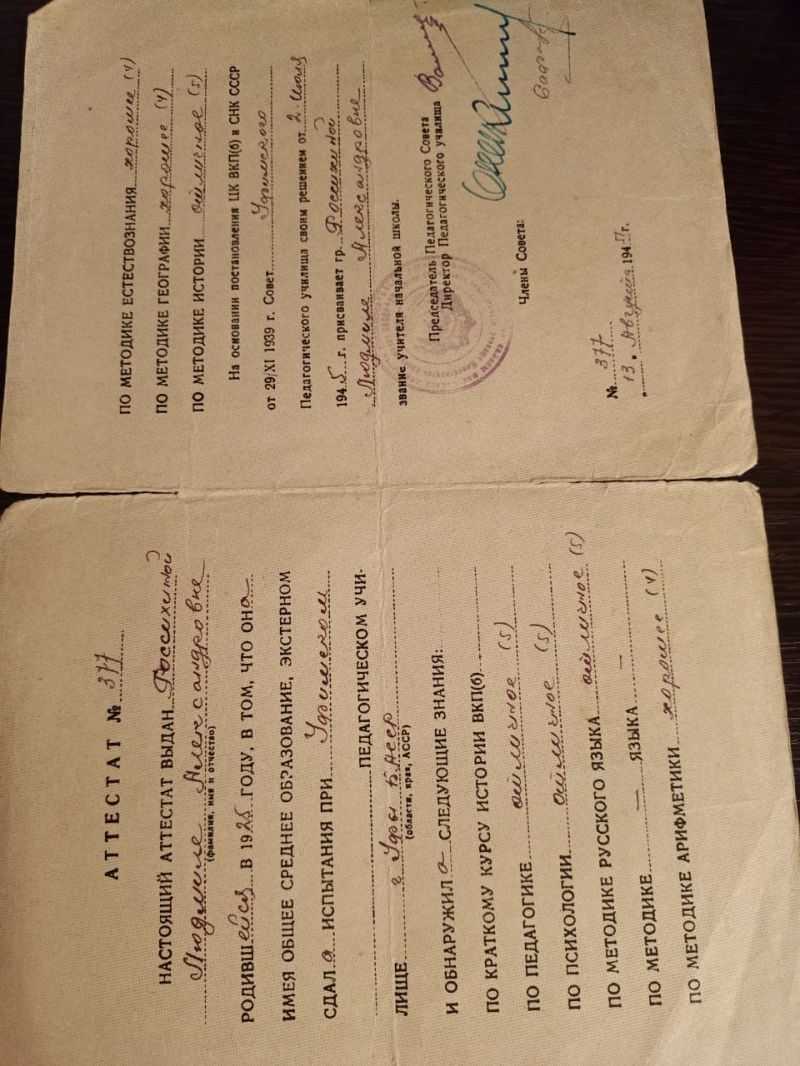 АТТЕСТАТ № 377
НАСТОЯЩИЙ АТТЕСТАТ ВЫДАН Россихиной
Людмиле Александровне
(фамилия, имя и отчество)
РОДИВШейся В 1925 ГОДУ, В ТОМ, ЧТО ОНа
ИМЕЯ ОБЩЕЕ СРЕДНЕЕ ОБРАЗОВАНИЕ, ЭКСТЕРНОМ
СДАЛа ИСПЫТАНИЯ ПРИ Уфимском
ПЕДАГОГИЧЕСКОМ УЧИ-
ЛИЩЕ г. Уфы БАССР
(области, края, АССР)
И ОБНАРУЖИЛа СЛЕДУЮЩИЕ ЗНАНИЯ:
ПО КРАТКОМУ КУРСУ ИСТОРИИ ВКП(б)
ПО ПЕДАГОГИКЕ отличное (5)
ПО ПСИХОЛОГИИ отличное (5)
ПО МЕТОДИКЕ РУССКОГО ЯЗЫКА отличное (5)
ПО МЕТОДИКЕ — ЯЗЫКА —
ПО МЕТОДИКЕ АРИФМЕТИКИ хорошее (4)
ПО МЕТОДИКЕ ЕСТЕСТВОЗНАНИЯ хорошее (4)
ПО МЕТОДИКЕ ГЕОГРАФИИ хорошее (4)
ПО МЕТОДИКЕ ИСТОРИИ отличное (5)
На основании постановления ЦК ВКП(б) и СНК СССР
от 29/XI 1939 г. Совет Уфимского
Педагогического училища своим решением от 2 июля
1945 г. присваивает гр. Россихиной
Людмиле Александровне
звание учителя начальной школы.
Председатель Педагогического Совета
Директор Педагогического училища
Члены Совета:
№ 377
„13" Августа 1947 г.